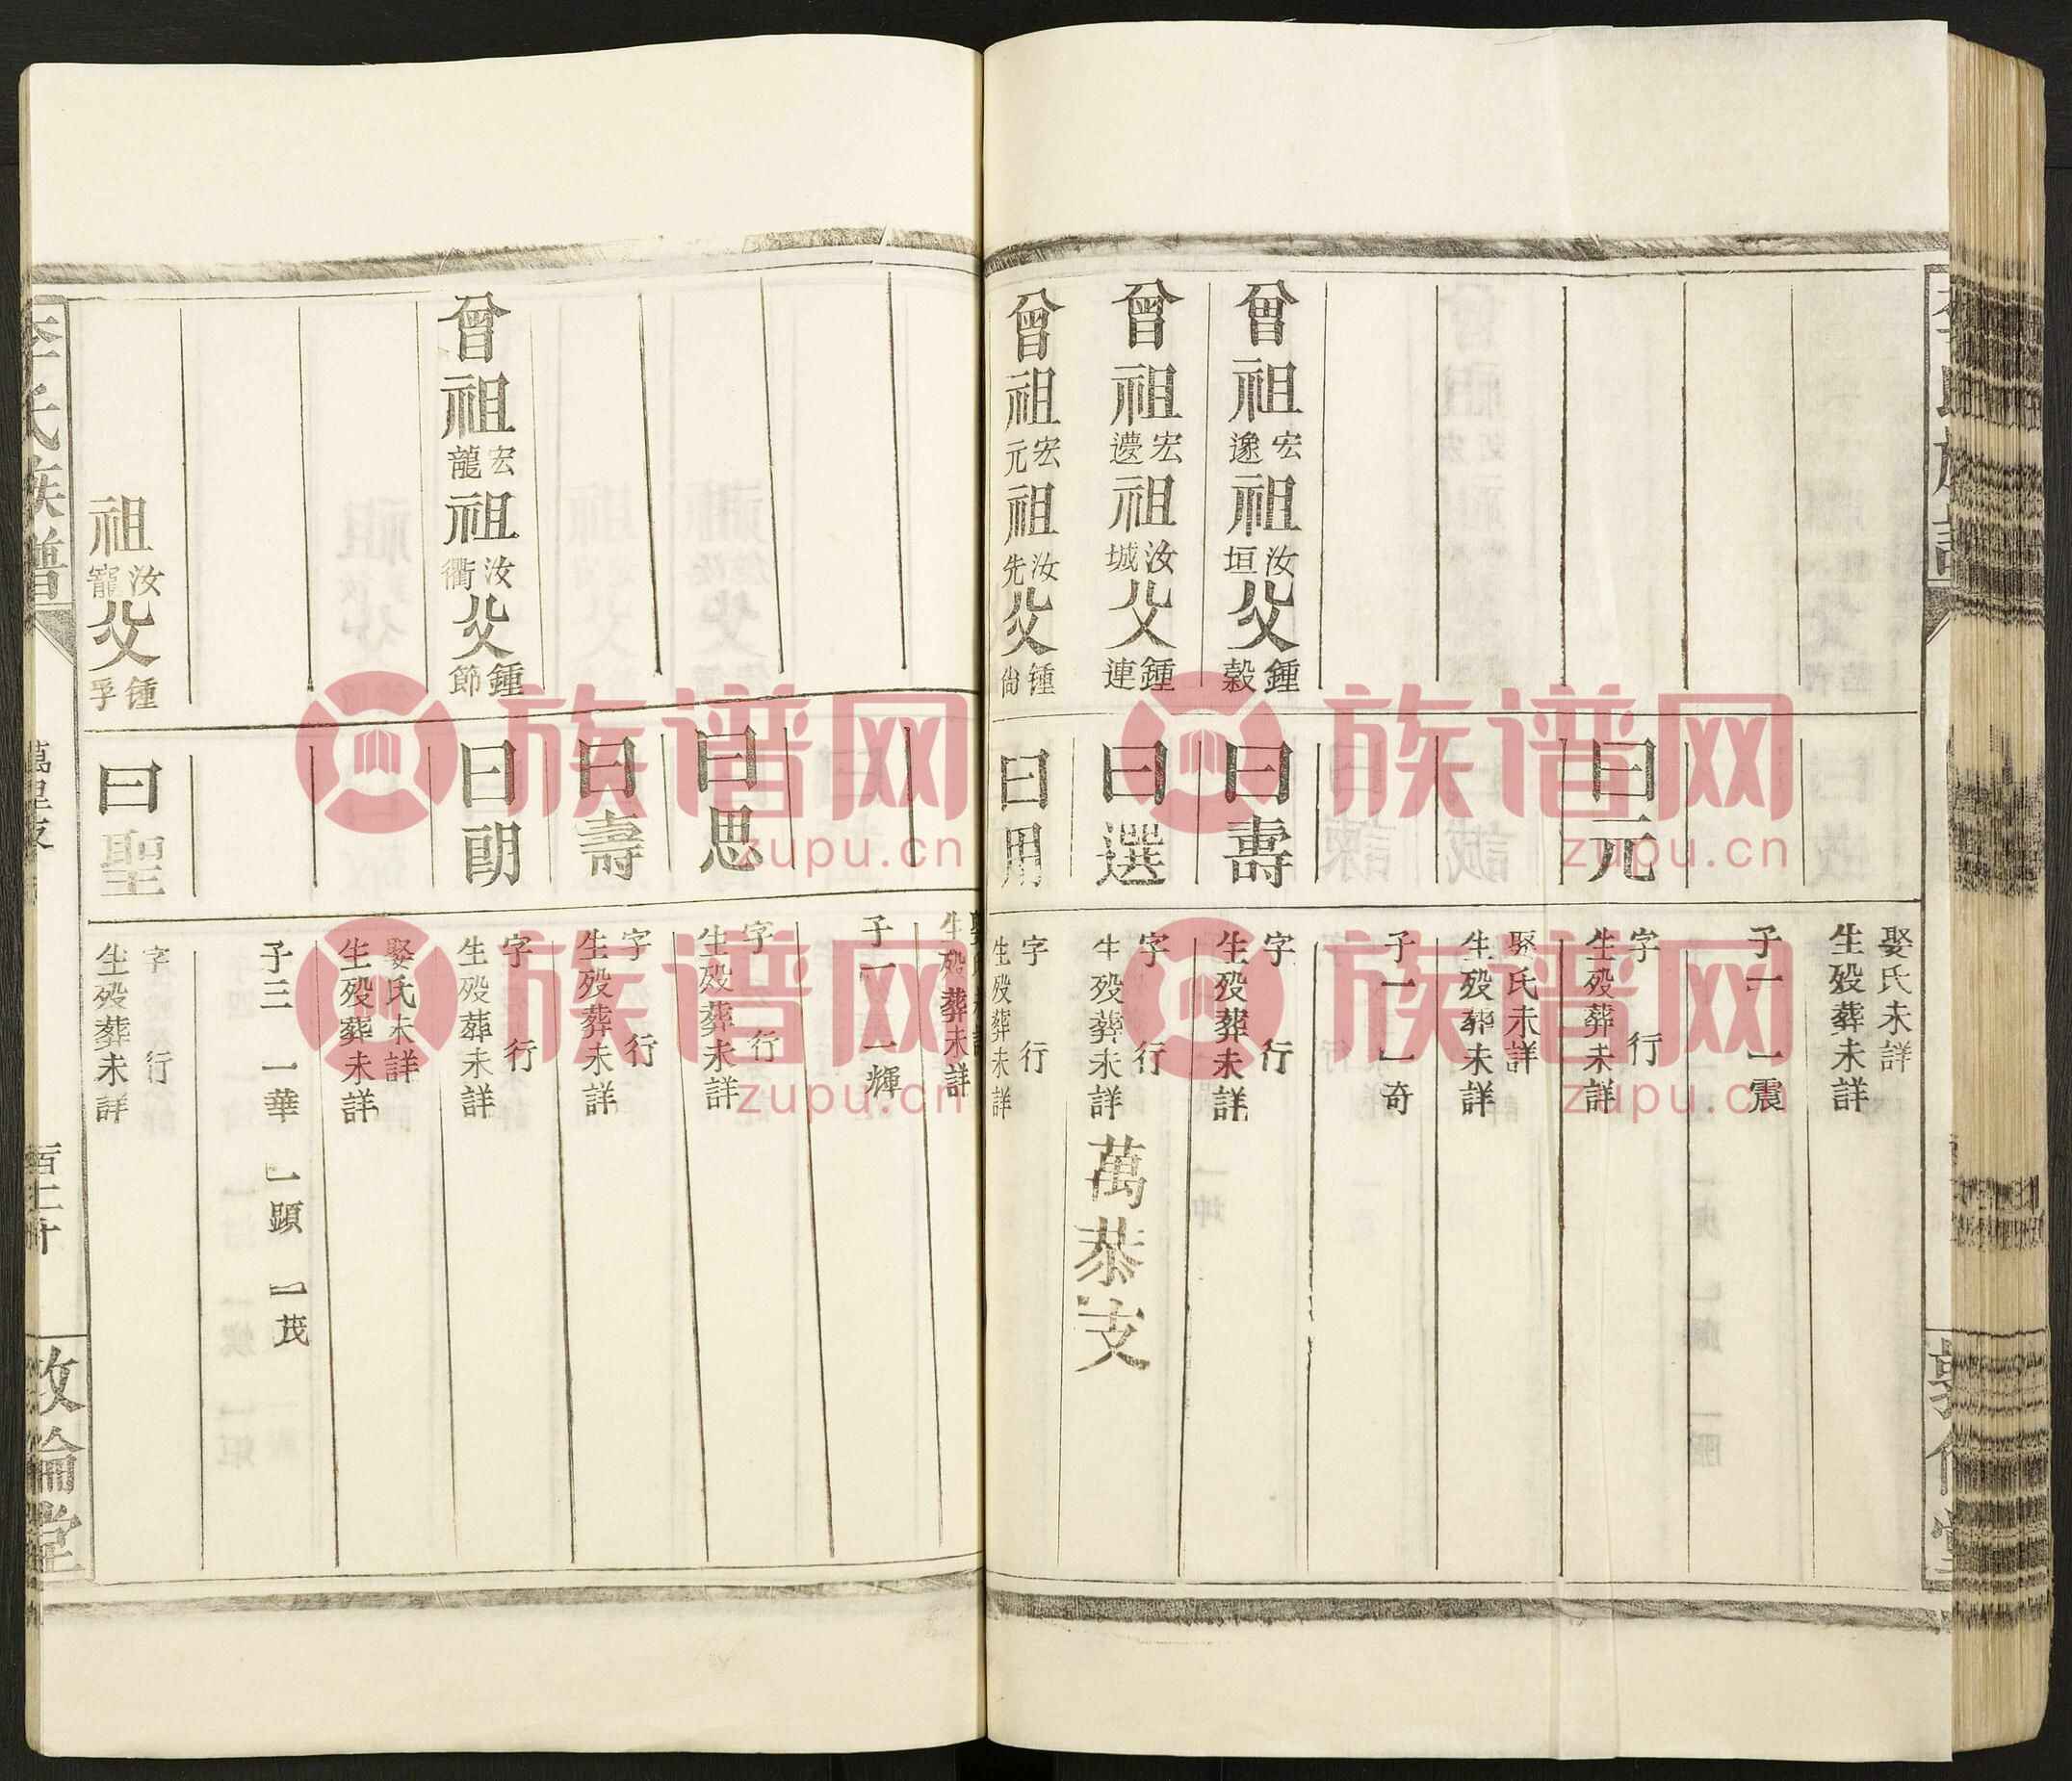 娶氏未詳
生殁葬未詳
子一 一震
曰元
字 行
生殁葬未詳
娶氏未詳
生殁葬未詳
子一 一奇
曾祖宏邃祖汝垣父鍾穀
曰壽
字 行
生殁葬未詳
曾祖宏遷祖汝城父鍾連
曰選
字 行
生殁葬未詳
萬恭支
曾祖宏元祖汝先父鍾尙
曰用
字 行
生殁葬未詳
生殁葬未詳
子一 一輝
曰思
字 行
生殁葬未詳
曰壽
字 行
生殁葬未詳
曾祖宏龍祖汝衢父鍾節
曰朗
字 行
生殁葬未詳
娶氏未詳
生殁葬未詳
子三 一華 一顕 一茂
祖汝寵父鍾孚
曰聖
字 行
生殁葬未詳
李氏族譜
百二十
敦倫堂
族谱网
zupu.cn
族谱网
zupu.cn
族谱网
zupu.cn
族谱网
zupu.cn